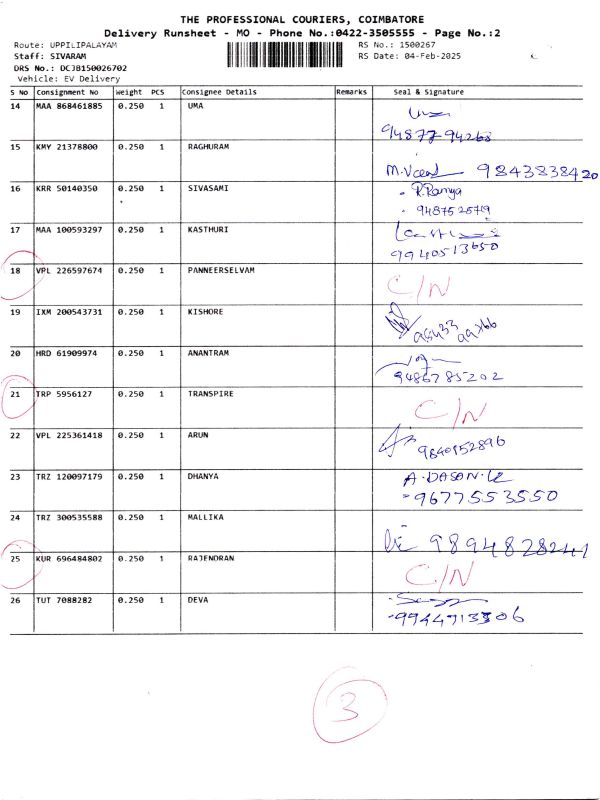 THE PROFESSIONAL COURIERS, COIMBATORE
Delivery Runsheet - MO - Phone No.:0422-3505555 - Page No.:2
Route: UPPILIPALAYAM RS No.: 1500267
Staff: SIVARAM RS Date: 04-Feb-2025
DRS No.: DCJB150026702
Vehicle: EV Delivery
S No Consignment No Weight PCS Consignee Details Remarks Seal & Signature
14 MAA 868461885 0.250 1 UMA
94877-94268
15 KMY 21378800 0.250 1 RAGHURAM
9843838420
16 KRR 50140350 0.250 1 SIVASAMI R.Ramya
9487525719
17 MAA 100593297 0.250 1 KASTHURI
9940513650
18 VPL 226597674 0.250 1 PANNEERSELVAM C/N
19 IXM 200543731 0.250 1 KISHORE
20 HRD 61909974 0.250 1 ANANTRAM
9486785202
21 TRP 5956127 0.250 1 TRANSPIRE C/N
22 VPL 225361418 0.250 1 ARUN
9840152896
23 TRZ 120097179 0.250 1 DHANYA A.DASAN.K
9677553550
24 TRZ 300535588 0.250 1 MALLIKA
9894828241
25 KUR 696484802 0.250 1 RAJENDRAN C/N
26 TUT 7088282 0.250 1 DEVA
9944713306
3